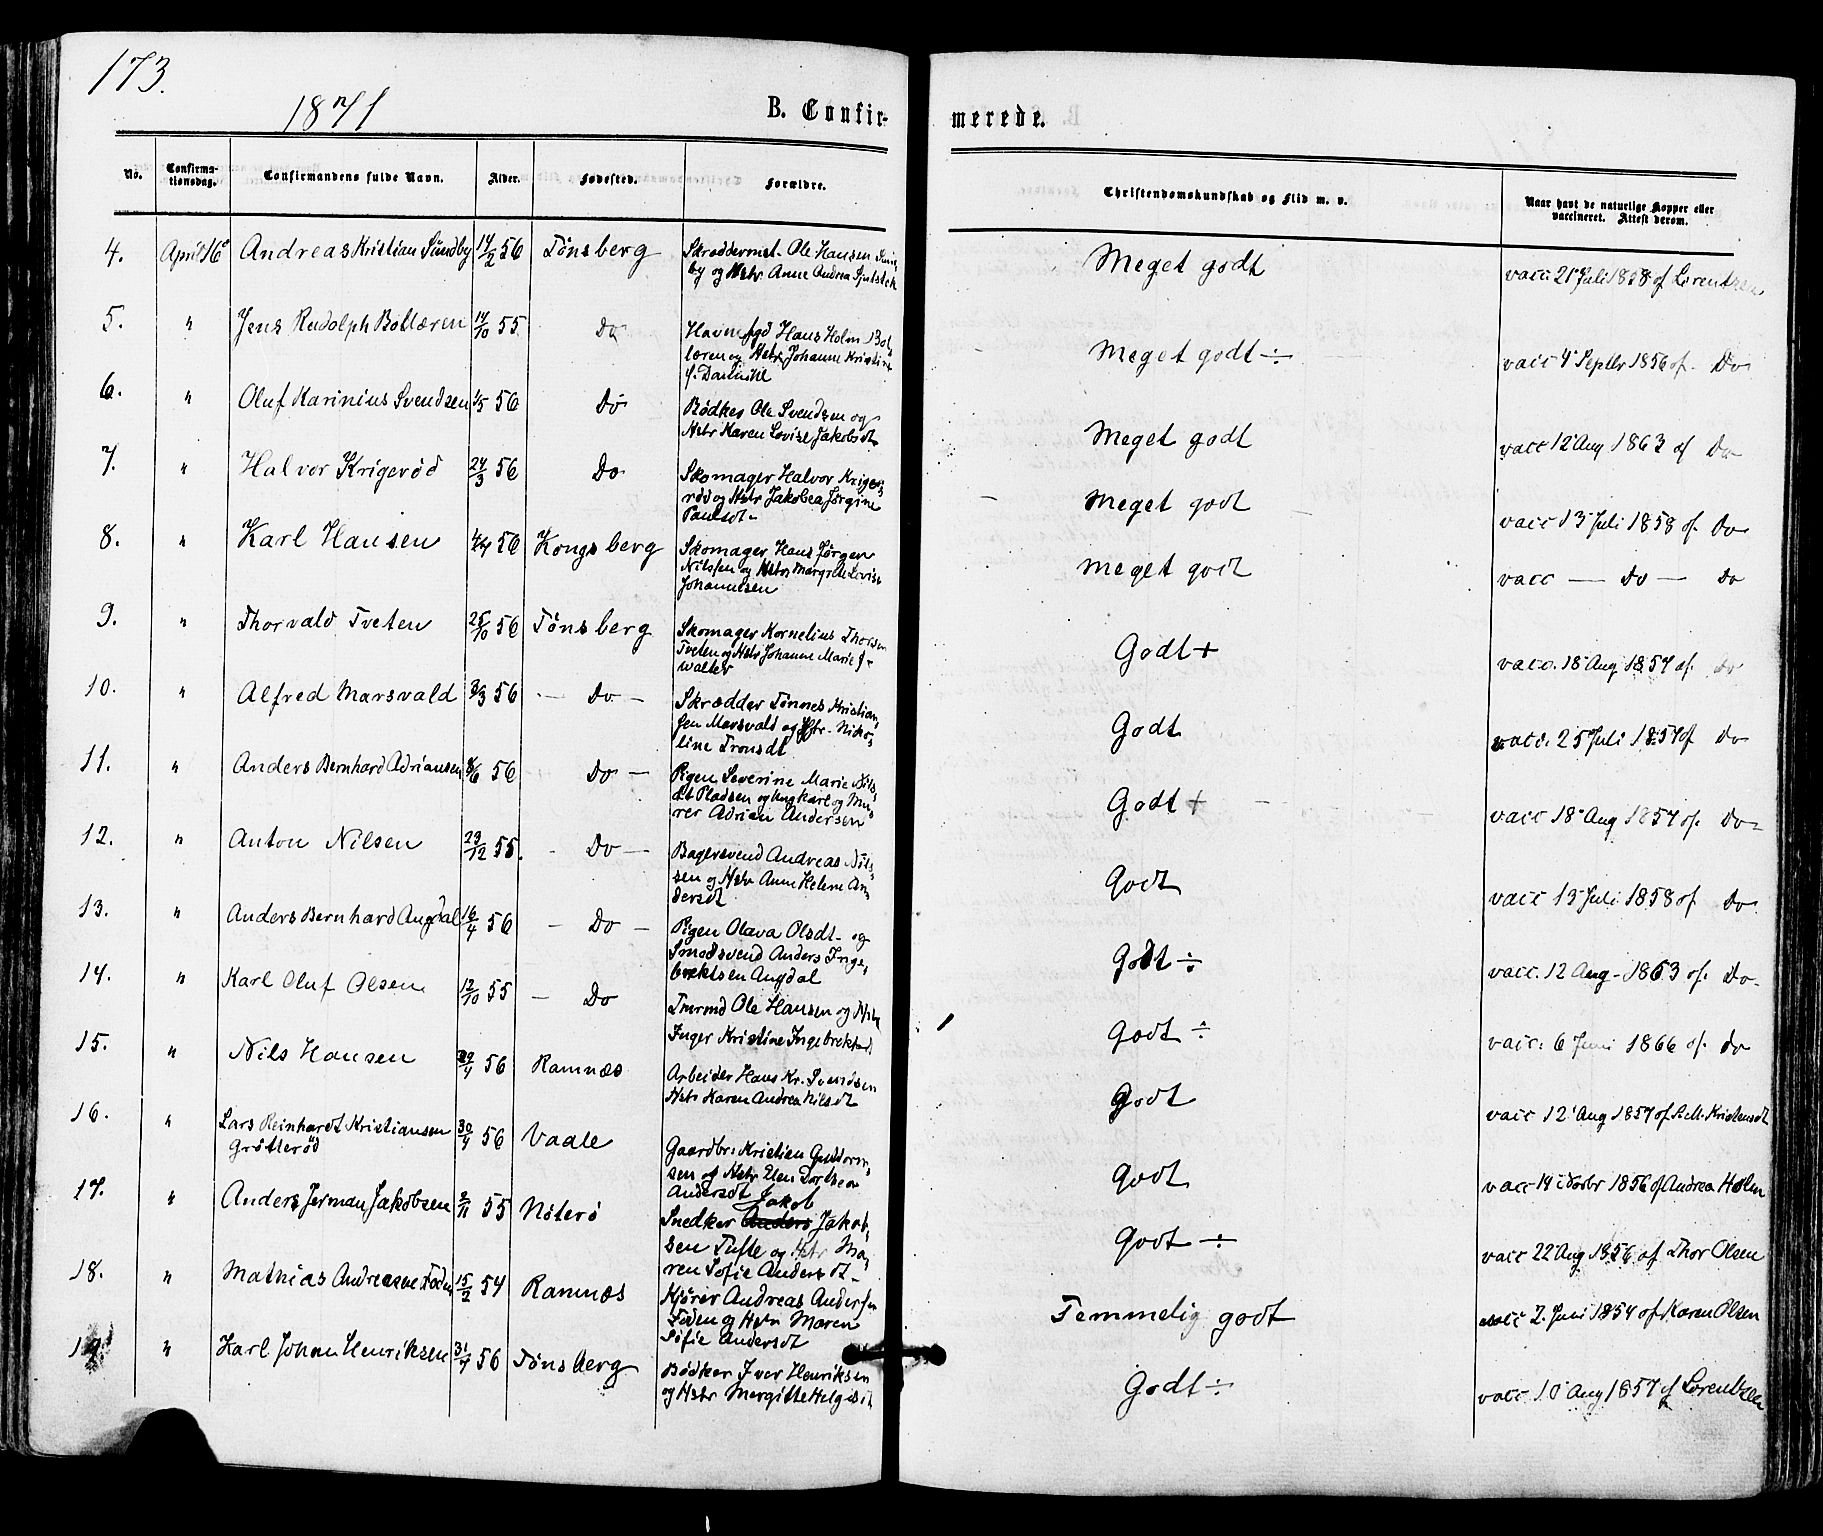 173.
1871
B. Confir-
merede.
No.
Confirma-
tionsdag.
Confirmandens fulde Navn.
Alder.
Fødested.
Forældre.
Christendomskundskab og Flid m. v.
Naar havt de naturlige Kopper eller
vaccineret. Attest derom.
4. April 16 Andreas Kristian Sundby 14/2 56 Tønsberg
Skræddermst. Ole Hansen
by og Hstr Anne Andrea
Meget godt
vacc. 21 Juli 1858 af Lorentzen
5. " Jens Rudolph Bollæren 14/10 55 Do
Havnefgd Hans Holm Bol-
læren og Hstr Johanne Kristine
Meget godt ÷
vacc 4 Septbr 1856 af Do
6. " Oluf Karinius Svendsen 1/5 56 Do
Bødker Ole Svendsen og
Hstr Karen Lovise Jakobsdt
Meget godt
vacc 12 Aug 1863 af Do
7. " Halvor Krigerød 24/3 56 Do
Skomager Halvor Krige-
rød og Hstr Jakobea Jørgine
Paulsdt
Meget godt
vacc 13 Juli 1858 af Do
8. " Karl Hansen 56 Kongsberg
Skomager Hans Jørgen
Nilssen og Hstr Margrete Lovise
Johannesen
Meget godt
vacc — Do — Do
9. " Thorvald Tveten 25/10 56 Tønsberg
Skomager Kornelius Thorsen
Tveten og Hstr Johanne Marie
Walter
Godt +
vacc. 18 Aug 1857 af. Do
10. " Alfred Marsvald 3/3 56 — Do —
Skrædder Tønnes Kristian-
sen Marsvald og Hstr. Niko-
line Tronsdt
Godt
vacc. 25 Juli 1857 af Do
11. " Anders Bernhard Adriansen 8/6 56 — Do —
Pigen Severine Marie Nils-
dt Pladsen og Ungkarl og Mu-
rer Adrian Andersen
Godt +
vacc 18 Aug 1857 af. Do
12. " Anton Nilsen 29/12 55. - Do —
Bagersvend Andreas Nils-
sen og Hstr Anne Helene An-
dersdt
Godt
vacc 13 Juli 1858 af Do
13. " Anders Bernhard Angdal 16/4 56 — Do —
Pigen Olava Olsdt og
Smedsvend Anders Inge-
brektsen Angdal
Godt ÷
vacc. 12 Aug 1863 af. Do
14. " Karl Oluf Olsen 12/10 55 — Do
Ole Hansen og Hstr
Inger Kristine Ingebrektsdt
Godt ÷
vacc. 6 Juni 1866 af. Do
15. " Nils Hansen 29/4 56 Ramnæs
Arbeider Hans Kr. Svendsen
Hstr Karen Andrea Nilsdt
Godt
vacc 12 Aug 1857 af Kristensdt
16. " Lars Reinhardt Kristiansen 30/4 56 Vaale
Grøtterød
Gaardbr. Kristian Guttorm-
sen og Hstr Elen Dorthea
Andersdt
Godt
vacc 14 Octbr 1856 af Andrea Holm
17. " Anders Jerman Jakobsen 2/11 55 Nøterø
Jakob
Snedker Anders Jakob-
sen Tufte og Hstr Ma-
ren Sofie Andersdt
Godt ÷
vacc 22 Aug 1856 af Thor Olsen
18. " Mathias Andreasen Foden 15/2 54 Ramnæs
Kjører Andreas Andersen
Foden og Hstr Maren
Sofie Andersdt
Temmelig godt
vacc 2. Juni 1854 af Karen Olsen
19 " Karl Johan Henriksen 31/7 56 Tønsberg
Bødker Iver Henriksen
og Hstr Mergitte Helgesdt
Godt ÷
vacc 10 Aug 1857 af Lorentzen